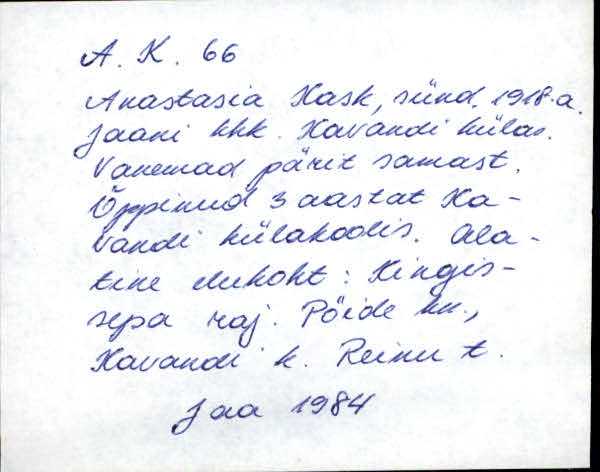 A. K. 66
Anastasia Kask, sünd. 1918. a.
Jaani khk. Kavandi külas.
Vanemad pärit samast.
Õppinud 3 aastat Ka-
vandi külakoolis. Ala-
tine elukoht: Kingis-
sepa raj. Pöide kn.,
Kavandi k. Reinu t.
Jaa 1984